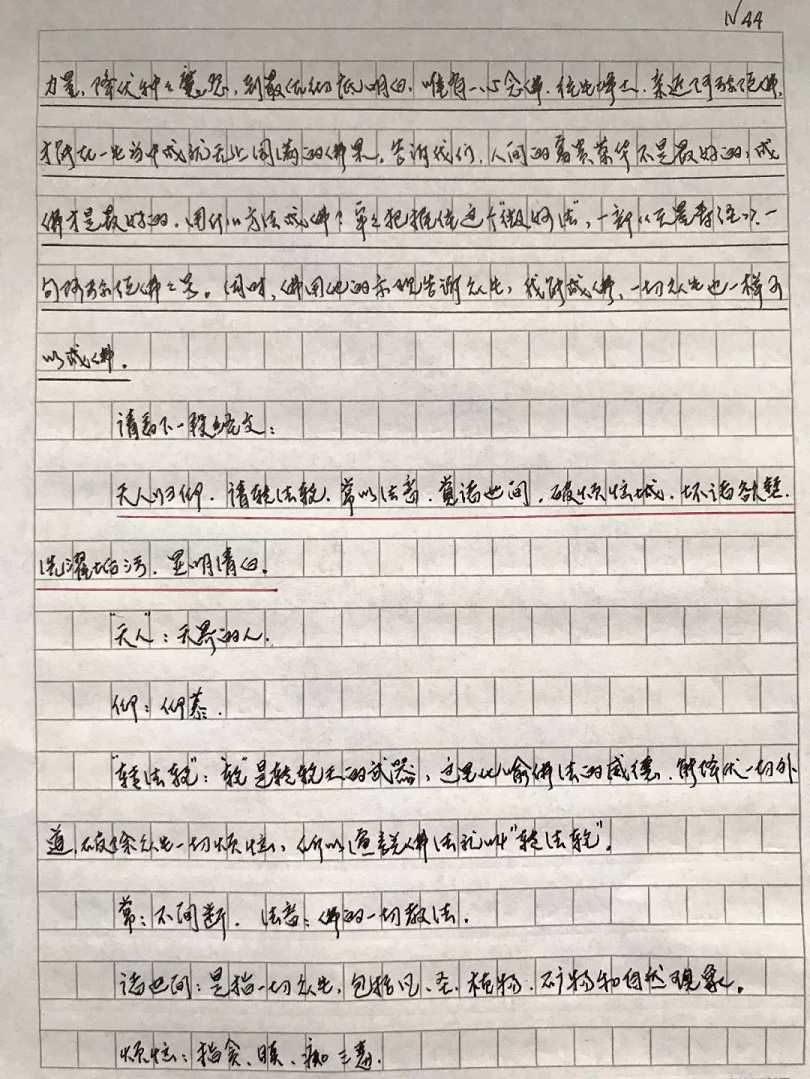 N44
力量，降伏种种魔怨，到最后彻底明白，唯有一心念佛，往生净土，亲近阿弥陀佛，
才能在一生当中成就无上圆满的佛果。告诉我们，人间的富贵荣华不是最好的，成
佛才是最好的。用什么方法成佛？牢牢把握住这个“微妙法”，一部《无量寿经》、一
句阿弥陀佛名号。同时，佛用他的示现告诉众生，我能成佛，一切众生也一样可
以成佛。
请看下一段经文：
天人归仰。请转法轮。常以法音。觉诸世间。破烦恼城。坏诸欲堑。
洗濯垢污。显明清白。
“天人”：天界的人。
仰：仰慕。
“转法轮”：“轮”是转轮王的武器，这里比喻佛法的威德，能降伏一切外
道，破除众生一切烦恼，所以宣说佛法就叫“转法轮”。
常：不间断。法音：佛的一切教法。
诸世间：是指一切众生，包括凡、圣、植物、矿物和自然现象。
烦恼：指贪、瞋、痴三毒。